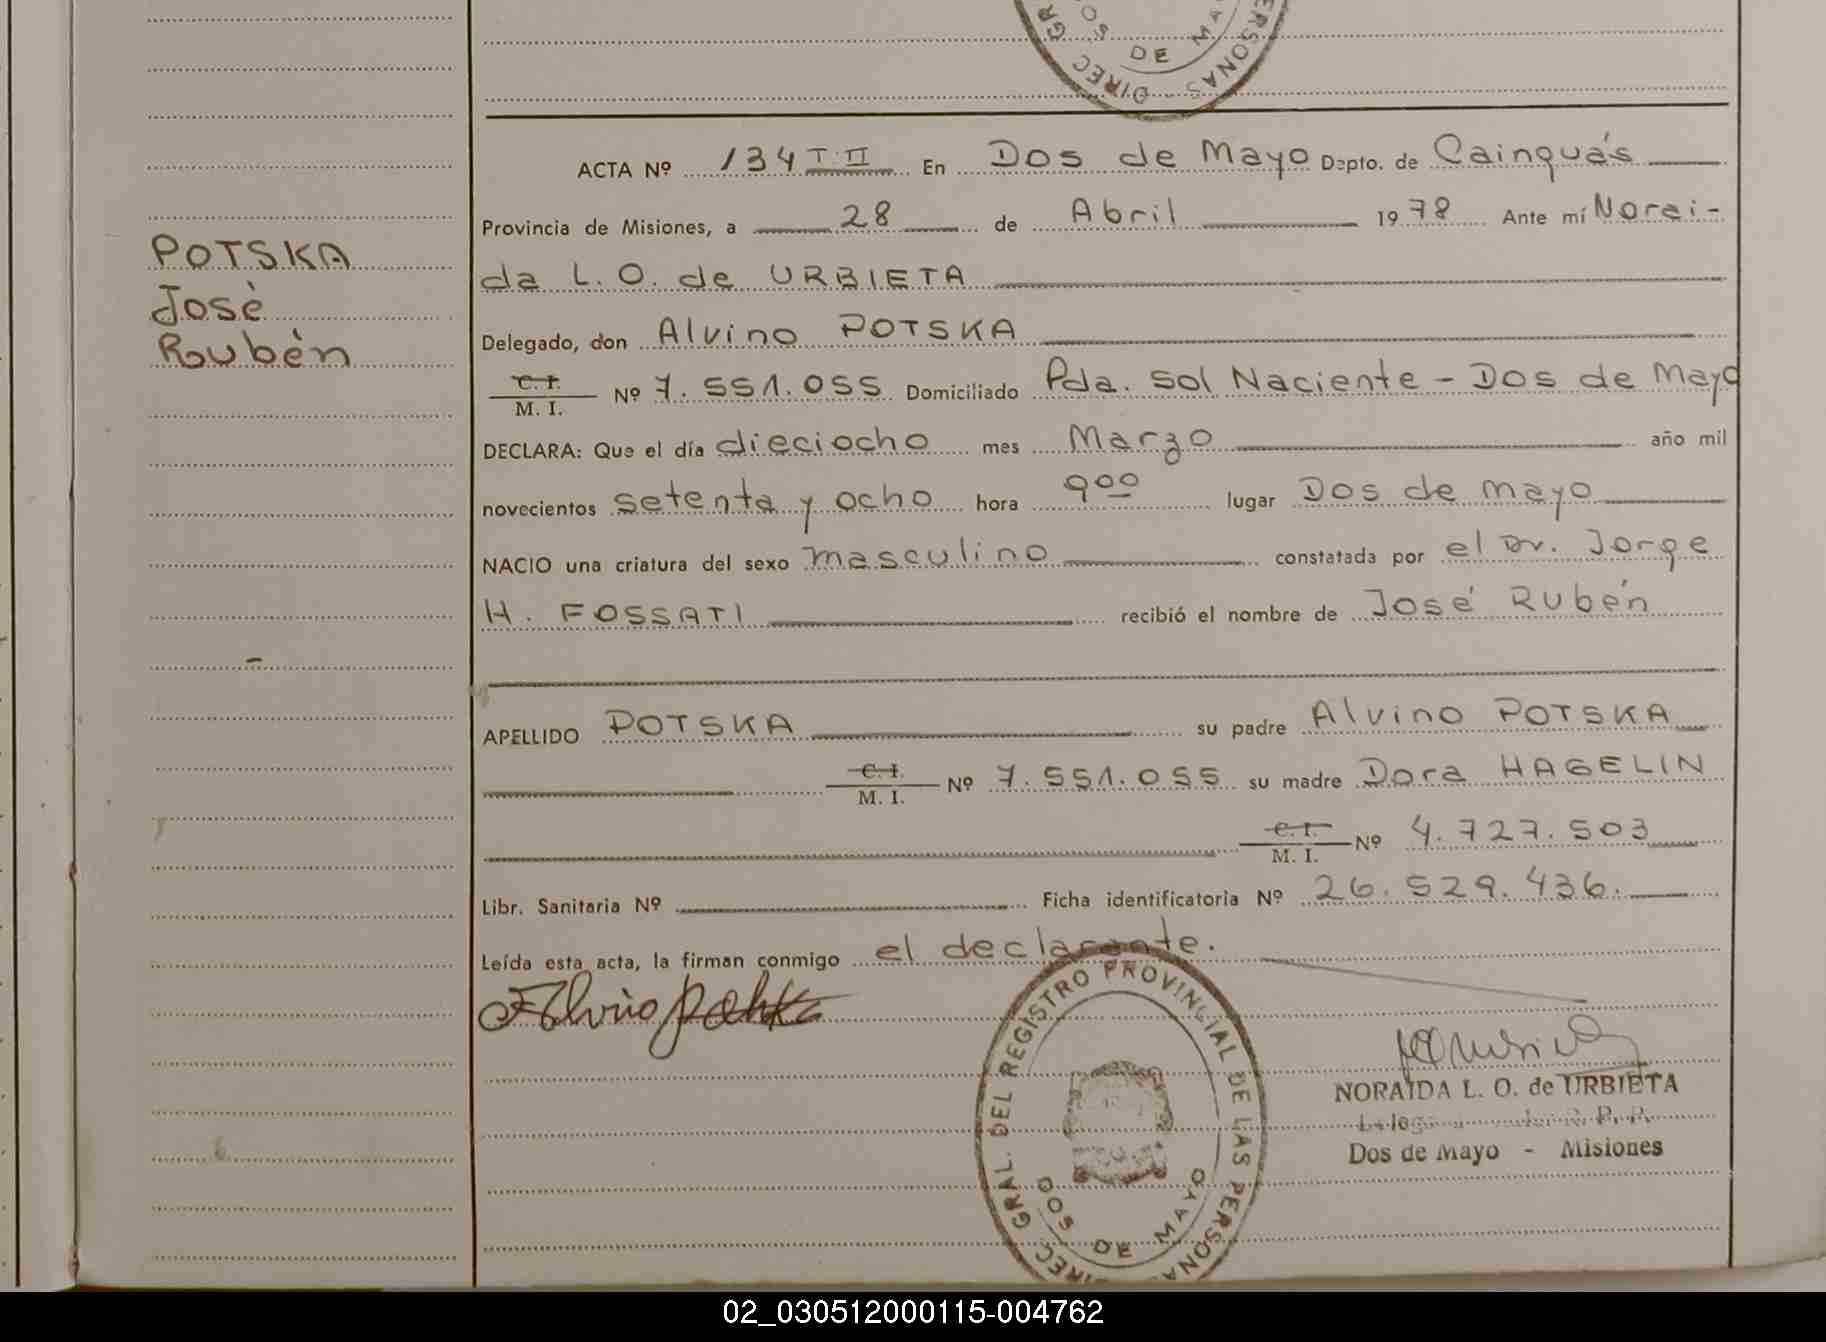 DIREC GR
SOS DE MA
PERSONAS
ACTA Nº 134 T. II En Dos de Mayo Depto. de Cainguás
Provincia de Misiones, a 28 de Abril 1978 Ante mí Norai-
da L. O. de URBIETA
POTSKA
José
Rubén
Delegado, don Alvino POTSKA
C. I. M. I. Nº 7.551.055 Domiciliado Pda. Sol Naciente - Dos de Mayo
DECLARA: Que el día dieciocho mes Marzo año mil
novecientos setenta y ocho hora 9 00 lugar Dos de Mayo
NACIO una criatura del sexo masculino constatada por el Dr. Jorge
H. FOSSATI recibió el nombre de José Rubén
APELLIDO POTSKA su padre Alvino POTSKA
C. I. M. I. Nº 7.551.055 su madre Dora HAGELIN
C. I. M. I. Nº 4.727.503
Libr. Sanitaria Nº Ficha identificatoria Nº 26.529.436.
Leída esta acta, la firman conmigo el declarante.
Alvino Potska
DIREC GRAL. DEL REGISTRO PROVINCIAL DE LAS PERSONAS
DOS DE MAYO
NORAIDA L. O. de URBIETA
Dos de Mayo - Misiones
02_030512000115-004762